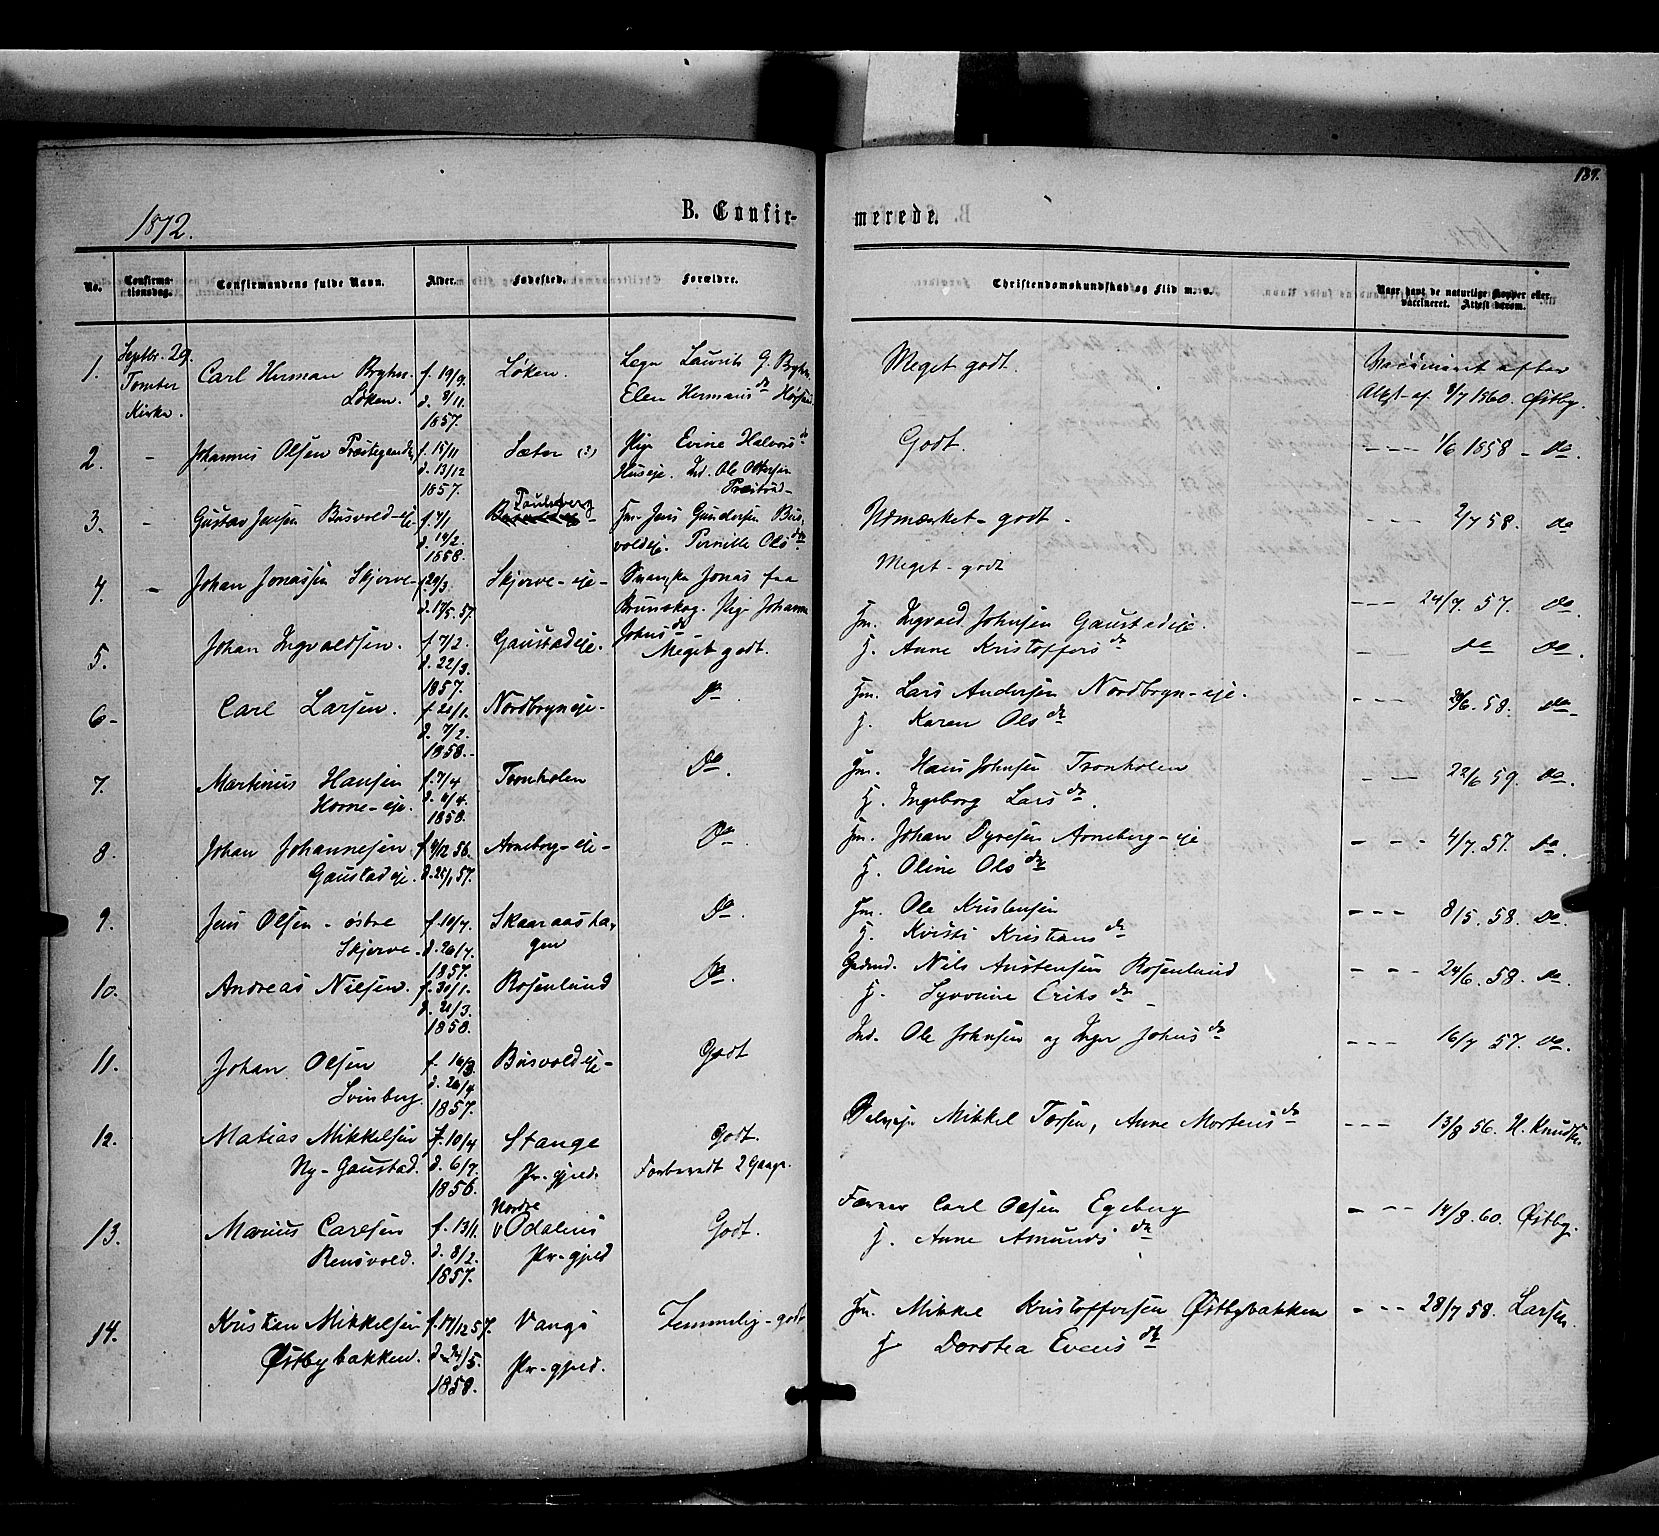 139.
1872.
B. Confir-
merede.
No.
Confirma-
tionsdag.
Confirmandens fulde Navn.
Alder.
Fødested.
Forældre.
Christendomskundskab og Flid m. v.
Naar havt de naturlige Kopper eller
vaccineret. Attest derom.
1.
Septbr. 29.
Tomter
Kirke.
Carl Herman Bryhn
Løken.
f. 19/9.
d. 8/11.
1857.
Løken.
Laurits G. Bryhn
Elen Hermans dr
Meget godt.
Vaccineret efter
Attest af 8/7 1860. Østby.
2.
-
Johannes Olsen
f. 15/11
d. 13/12
1857.
Sæter (?)
Pige Evine Halvors dr
Huseje. Ind. Ole Ottersen
Godt.
- - - 1/6 1858 - do.
3.
-
Gustav Jensen Busvold-eje
f. 7/1
d. 14/2.
1858.
Paulsberg
Hm. Jens Gundersen Bus-
voldeje. Pernille Ols dr.
Udmærket-godt.
- - - 2/7 58. do
4.
-
Johan Jonassen Skjerve-
f. 29/3.
d. 17/5. 57.
Skjerve-eje-
Svenske Jonas fra
Brunskog. Pige Johanne
Johns dr -
Meget-godt
- - - 24/7. 57. do
5.
Johan Ingvaldsen.
f. 7/2.
d. 22/3.
1857.
Gaustadeje.
Meget godt.
Hm. Ingvald Johnsen Gaustadeje.
H. Anne Kristoffers dr
- - do do.
6-
Carl Larsen.
f. 21/1.
d. 7/2.
1858.-
Nordbyneje-
Do.
Hm. Lars Andersen Nordbyn-eje.
H. Karen Ols dr
- - - 58. do-
7.
Martinus Hansen
Horne-eje.
f. 7/4
1858.
Tronholen
Do.
Hm. Hans Johnsen Tronholen
H. Ingeborg Lars dr.
- - 22/6 59. do.
8.
Johan Johannesen
Gaustadeje.
f. 4/12 56.
d. 25/1 57.
Arneberg-eje-
Do.
Hm. Johan Dyresen Arneberg-eje
H. Oline Ols dr
- - - 4/7. 57. do.
9.
Jens Olsen - østre
Skjerve-
f. 10/7.
d. 26/7.
1857.
Skaaraasha-
gen
Do.
Hm. Ole Kristensen
H. Kristi Kristians dr
- - - 8/5. 58. do.
10.
Andreas Nilsen.
f. 30/1.
d. 21/3.
1858.
Rosenlund
Do.
Gdmd. Nils Austensen Rosenlund
H. Syverine Eriks dr -
- - - 24/6. 58. do.
11.
Johan Olsen
Svinberg.
f. 16/3.
d. 26/4
1857.
Busvoldeje-
Godt
Ind. Ole Johnsen og Inger Johns dr
- - - 16/7 57. do.
12.
Matias Mikkelsen
Ny-Gaustad.
f. 10/4
d. 6/7.
1856.
Stange
Pr-gjeld.
Godt.
Forberedt 2 Gange.
Mikkel Torsen, Anne Mortens dr
- - - 13/8 56. H. Knudsen
13.
Marius Carlsen
Rensvold.
f. 13/1.
d. 8/2.
1857.
Nordre
Odalens
Pr-gjeld
Godt.
Farver Carl Olsen Egeberg
H. Anne Amunds dr
- - - 14/8. 60. Østby.
14.
Kristian Mikkelsen
Østbybakken.
f. 17/12 57.
d. 24/5.
1858.
Vangs
Pr-gjeld.
Temmelig-godt
Hm. Mikkel Kristoffersen Østbybakken
H. Dorotea Evens dr
- - - 28/7 58. Larsen